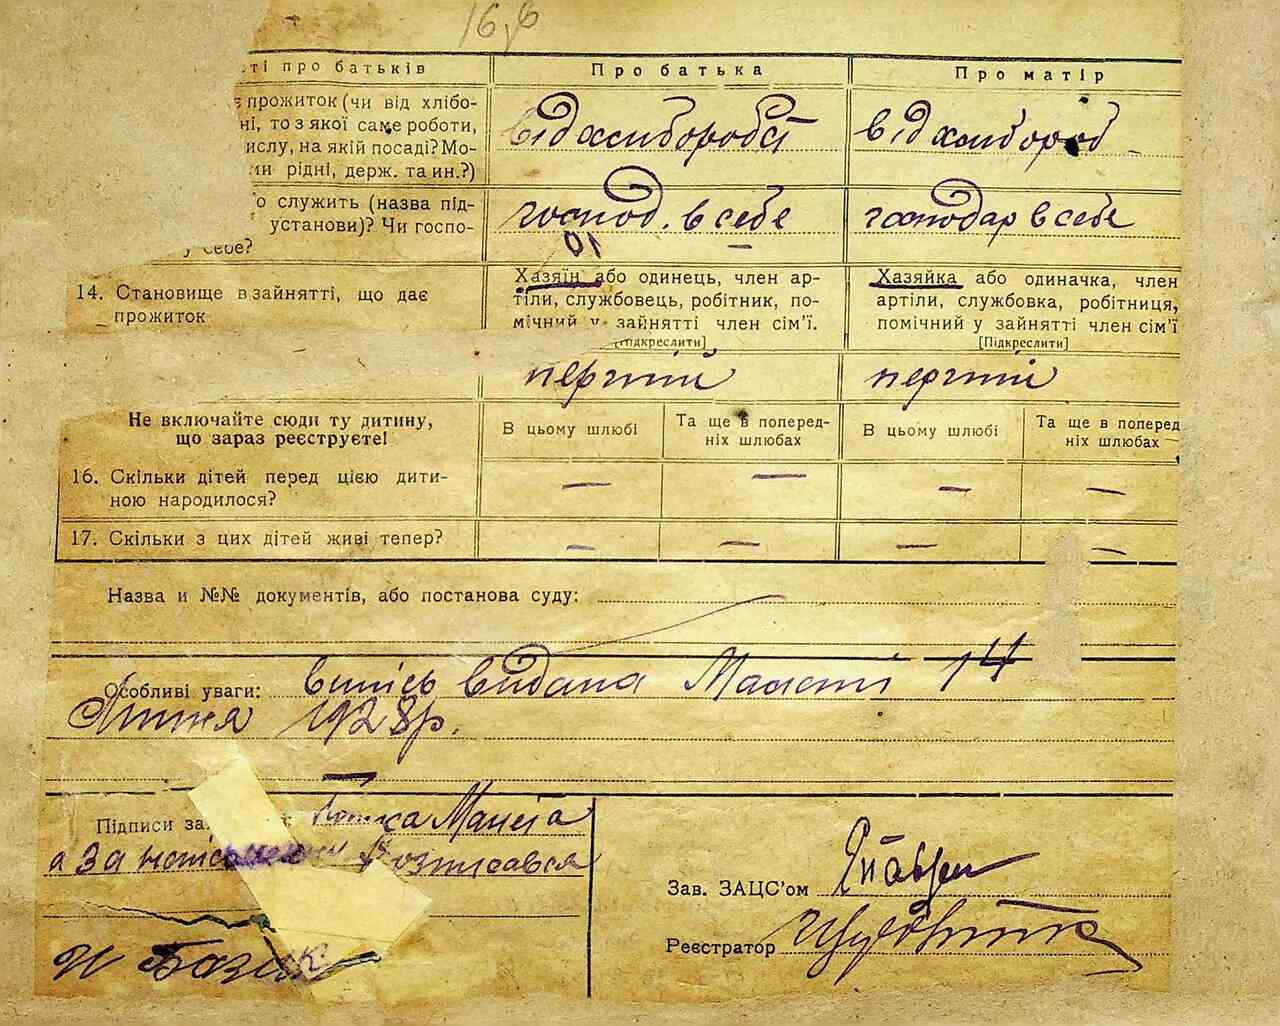 16
ті про батьків
Про батька
Про матір
прожиток (чи від хлібо-
ні, то з якої саме роботи,
ислу, на якій посаді? Мо-
ми рідні, держ. та ин.?)
від хліборобст
від хлібороб
о служить (назва під-
установи)? Чи госпо-
у себе?
господ. в себе
господар в себе
14. Становище в зайнятті, що дає
прожиток
Хазяїн або одинець, член ар-
тіли, службовець, робітник, по-
мічний у зайнятті член сім'ї.
[Підкреслити]
Хазяйка або одиначка, член
артіли, службовка, робітниця,
помічний у зайнятті член сім'ї
[Підкреслити]
перший
перший
Не включайте сюди ту дитину,
що зараз реєструєте!
В цьому шлюбі
Та ще в поперед-
ніх шлюбах
В цьому шлюбі
Та ще в поперед
ніх шлюбах
16. Скільки дітей перед цією дити-
ною народилося?
— — — —
17. Скільки з цих дітей живі тепер?
— — — —
Назва и №№ документів, або постанова суду:
Особливі уваги: випись видана 14
Липня 1928р.
Підписи за
а За розписався
Зав. ЗАЦС'ом
Реєстратор